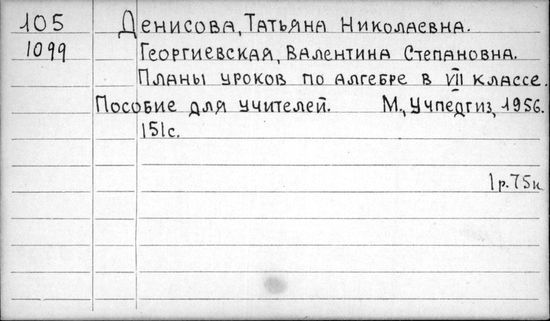 105 Денисова, Татьяна Николаевна.
1099 Георгиевская, Валентина Степановна.
Планы уроков по алгебре в VII классе.
Пособие для учителей. М., Учпедгиз, 1956.
151с.
1р.75к